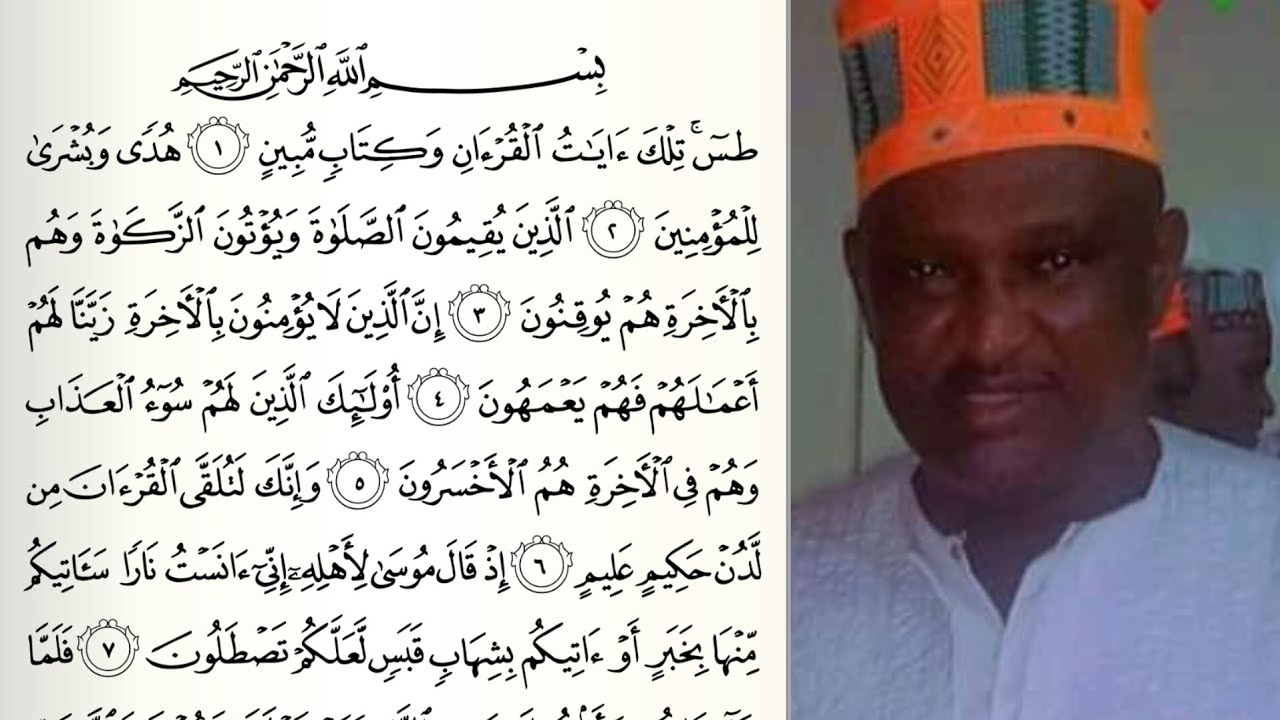 بِسْمِ ٱللَّهِ ٱلرَّحْمَٰنِ ٱلرَّحِيمِ
طسٓ ۚ تِلْكَ ءَايَٰتُ ٱلْقُرْءَانِ وَكِتَابٍ مُّبِينٍ ١ هُدًى وَبُشْرَىٰ
لِلْمُؤْمِنِينَ ٢ ٱلَّذِينَ يُقِيمُونَ ٱلصَّلَوٰةَ وَيُؤْتُونَ ٱلزَّكَوٰةَ وَهُم
بِٱلْأَخِرَةِ هُمْ يُوقِنُونَ ٣ إِنَّ ٱلَّذِينَ لَا يُؤْمِنُونَ بِٱلْأَخِرَةِ زَيَّنَّا لَهُمْ
أَعْمَٰلَهُمْ فَهُمْ يَعْمَهُونَ ٤ أُو۟لَٰٓئِكَ ٱلَّذِينَ لَهُمْ سُوٓءُ ٱلْعَذَابِ
وَهُمْ فِى ٱلْأَخِرَةِ هُمُ ٱلْأَخْسَرُونَ ٥ وَإِنَّكَ لَتُلَقَّى ٱلْقُرْءَانَ مِن
لَّدُنْ حَكِيمٍ عَلِيمٍ ٦ إِذْ قَالَ مُوسَىٰ لِأَهْلِهِۦٓ إِنِّىٓ ءَانَسْتُ نَارًا سَـَٔاتِيكُم
مِّنْهَا بِخَبَرٍ أَوْ ءَاتِيكُم بِشِهَابٍ قَبَسٍ لَّعَلَّكُمْ تَصْطَلُونَ ٧ فَلَمَّا